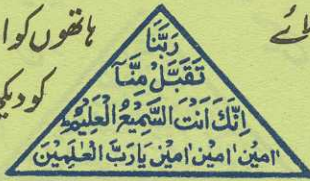 ہاتھوں کو ا
کو دیکھ
رَبَّنَا
تَقَبَّلْ مِنَّآ
اِنَّكَ اَنْتَ السَّمِيْعُ الْعَلِيْمُ
اٰمِيْن اٰمِيْن اٰمِيْن يَا رَبَّ الْعٰلَمِيْنَ